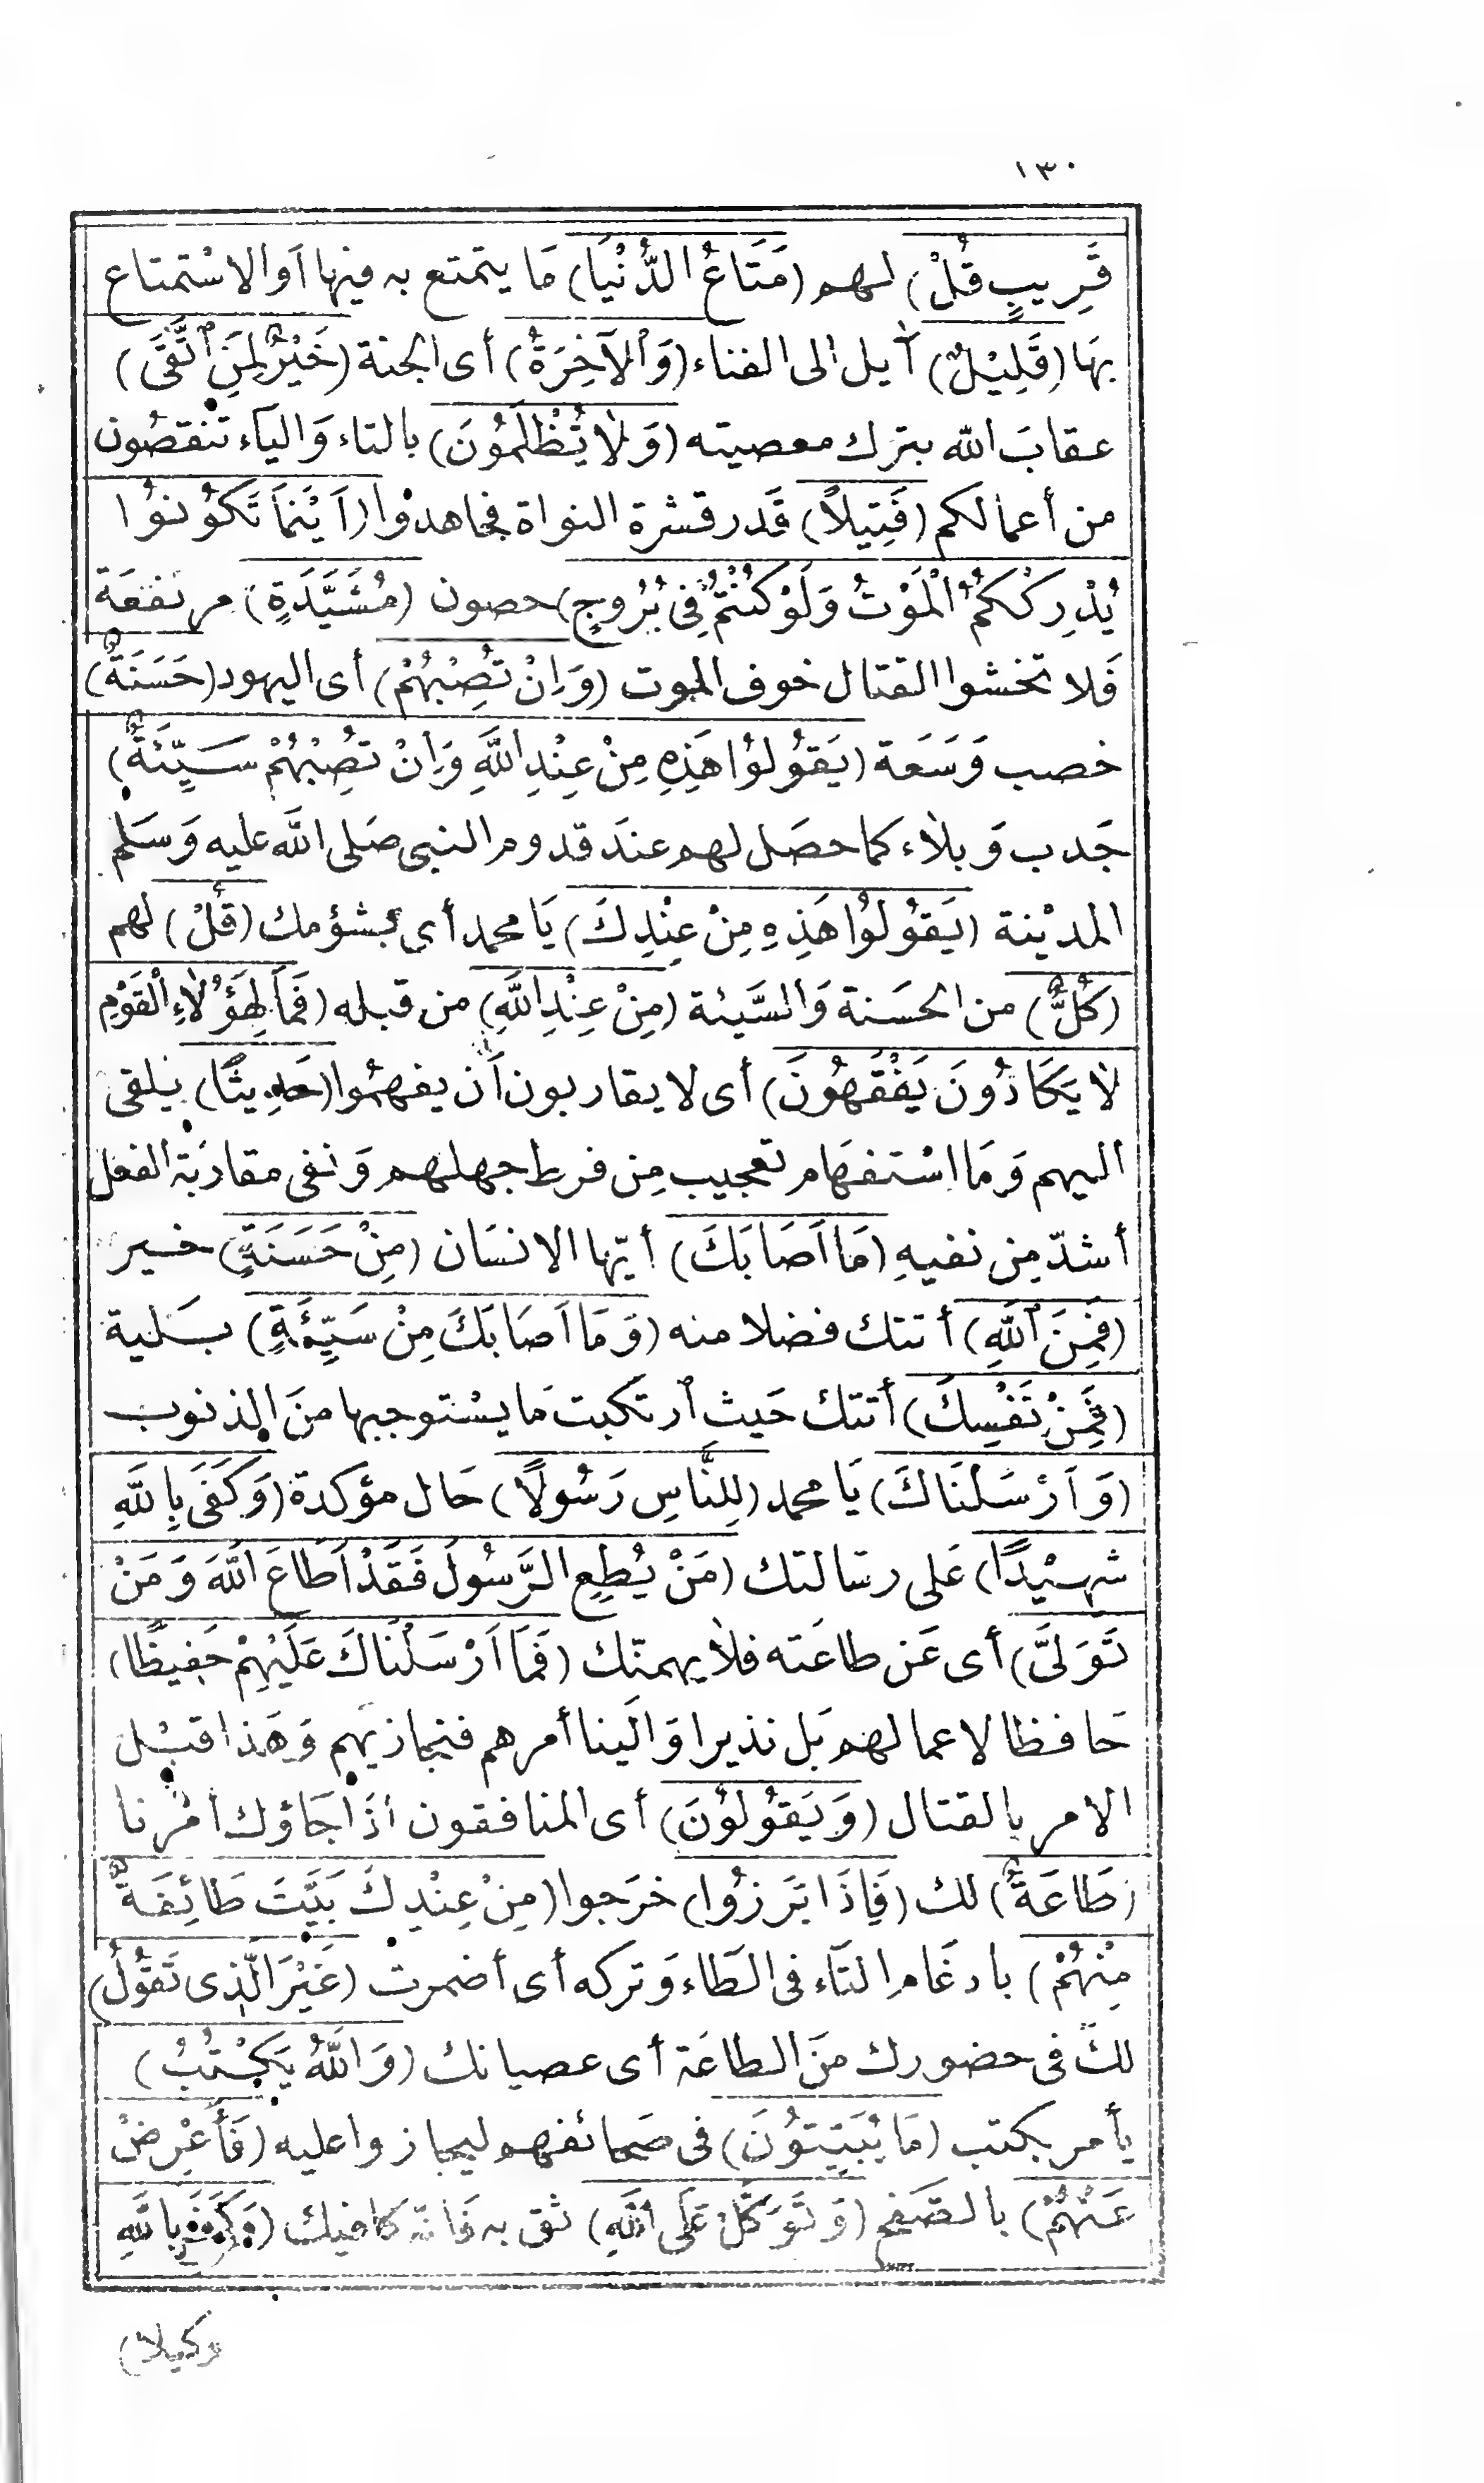 ١٣٠
قَرِيبٍ قُلْ) لهم (مَتَاعُ الدُّنْيَا) مَا يتمتع به فيها أو الاسْتمتاع
بهَا (قَلِيْلٌ) آيل الى الفناء (وَالْآخِرَةُ) أى الجنة (خَيْرٌ لِمَنِ اتَّقَى)
عقابَ الله بترك معصيته (وَلَا تُظْلَمُوْنَ) بالتاء وَالياء تنقصُون
من أعمالكم (فَتِيلًا) قَدر قشرة النواة فجاهدوْا (اَيْنَمَا تَكُوْنُوْا
يُدْرِكْكُمُ الْمَوْتُ وَلَوْ كُنْتُمْ فِى بُرُوجٍ) حصون (مُشَيَّدَةٍ) مرتفعَة
فَلا تخشوا القتال خوف الموت (وَاِنْ تُصِبْهُمْ) أى اليهود (حَسَنَةٌ)
خصب وَسَعَة (يَقُوْلُوْا هَذِهِ مِنْ عِنْدِ اللَّهِ وَاِنْ تُصِبْهُمْ سَيِّئَةٌ)
جَدب وَبلاء كما حصَل لهم عندَ قدوم النبى صَلى الله عليه وَسَلم
المديْنة (يَقُوْلُوْا هَذِهِ مِنْ عِنْدِكَ) يَا محمد أى بشؤمك (قُلْ) لهم
(كُلٌّ) من الحسَنة وَالسَّيئة (مِنْ عِنْدِ اللَّهِ) من قبله (فَمَالِ هَؤُلَاءِ الْقَوْمِ
لَا يَكَادُونَ يَفْقَهُونَ) أى لا يقاربون أن يفهمُوا (حَدِيثًا) يلقى
اليهم وَمَا اسْتفهَام تعجيب مِن فرط جهلهم وَنفى مقاربَة الفعل
أشدّ مِن نفيهِ (مَا اَصَابَكَ) أيّها الانسَان (مِنْ حَسَنَةٍ) خير
(فَمِنَ اللَّهِ) أتتك فضلا منه (وَمَا اَصَابَكَ مِنْ سَيِّئَةٍ) بَلية
(فَمِنْ نَفْسِكَ) أتتك حَيث ارتكبت مَا يسْتوجبها منَ الذنوب
(وَاَرْسَلْنَاكَ) يَا محمد (لِلنَّاسِ رَسُولًا) حَال مؤكدة (وَكَفَى بِاللَّهِ
شَهِيْدًا) عَلى رسَالتك (مَنْ يُطِعِ الرَّسُولَ فَقَدْ اَطَاعَ اللَّهَ وَمَنْ
تَوَلَّى) أى عَن طاعَته فلا يهمنّك (فَمَا اَرْسَلْنَاكَ عَلَيْهِمْ حَفِيظًا)
حَافظا لاعمالهم بَل نذيرا وَالَينا أمرهم فنجازيهم وَهَذا قبْل
الامر بالقتال (وَيَقُوْلُوْنَ) أى المنافقون اذَا جَاؤك امْرنا
(طَاعَةٌ) لك (فَاِذَا بَرَزُوا) خرَجوا (مِنْ عِنْدِكَ بَيَّتَ طَائِفَةٌ
مِنْهُمْ) بادغَام التَاء فى الطَاء وَتركه أى أضمرت (غَيْرَ الَّذِى تَقُوْلُ)
لكَ فى حضورك منَ الطاعَة أى عصيانك (وَاللَّهُ يَكْتُبُ)
يأمر بكتب (مَا يُبَيِّتُوْنَ) فى صَحائفهم ليجازوا عليه (فَأَعْرِضْ
عَنْهُمْ) بالصَفح (وَتَوَكَّلْ عَلَى اللَّهِ) ثق به فَانّه كافيك (وَكَفَى بِاللَّهِ
وكيلا)